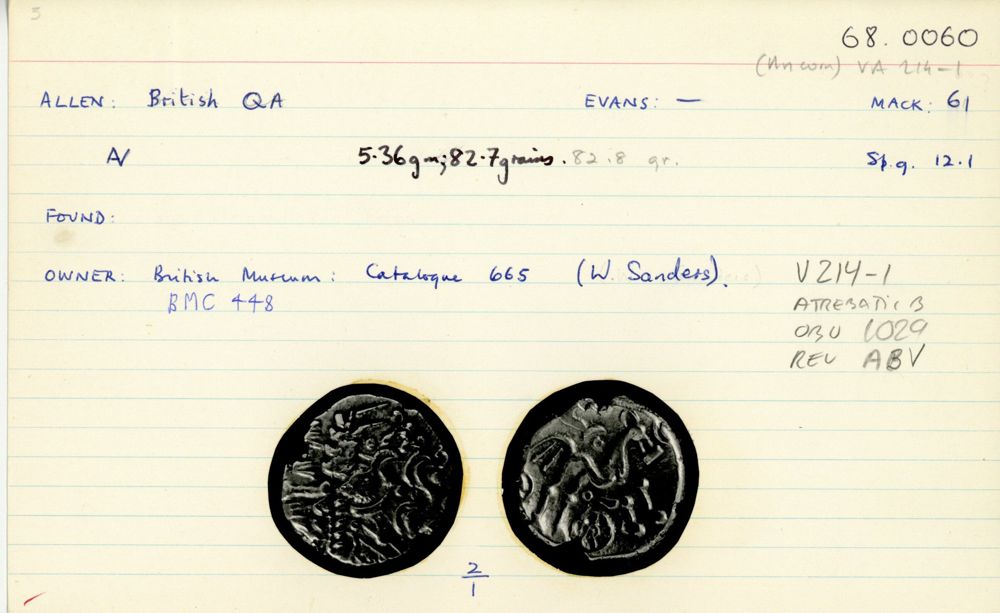 5
68.0060
(Ancom) VA 214-1
ALLEN: British QA EVANS: — MACK: 61
AV 5.36gm; 82.7grains. 82.8 gr. Sp.g. 12.1
FOUND:
OWNER: British Museum: Catalogue 665 (W. Sanders).
BMC 448
V214-1
ATREBATIC B
OBV 1029
REV ABV
2
1